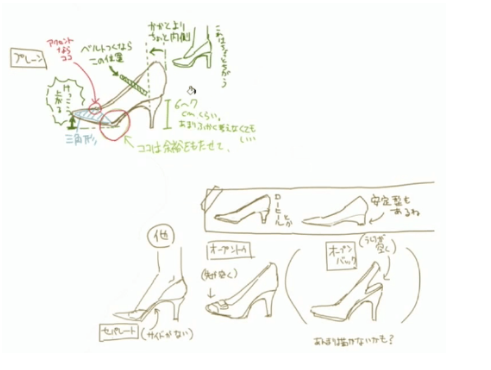 プレーン
アクセント
なら
ココ
ベルトつくなら
この位置
かかとより
ちょっと内側
これはちょっとちがう
けっこう
上がる
三角形
6〜7
cmくらい。
あまりふかく考えなくても
いい
ココは余裕をもたせて。
ローヒール
とか
安定型も
あるね
他
オープントゥ
(先が空く)
オープン
バック
(うしろが
空く)
セパレート
(サイドがない)
あんまり描かないかも?